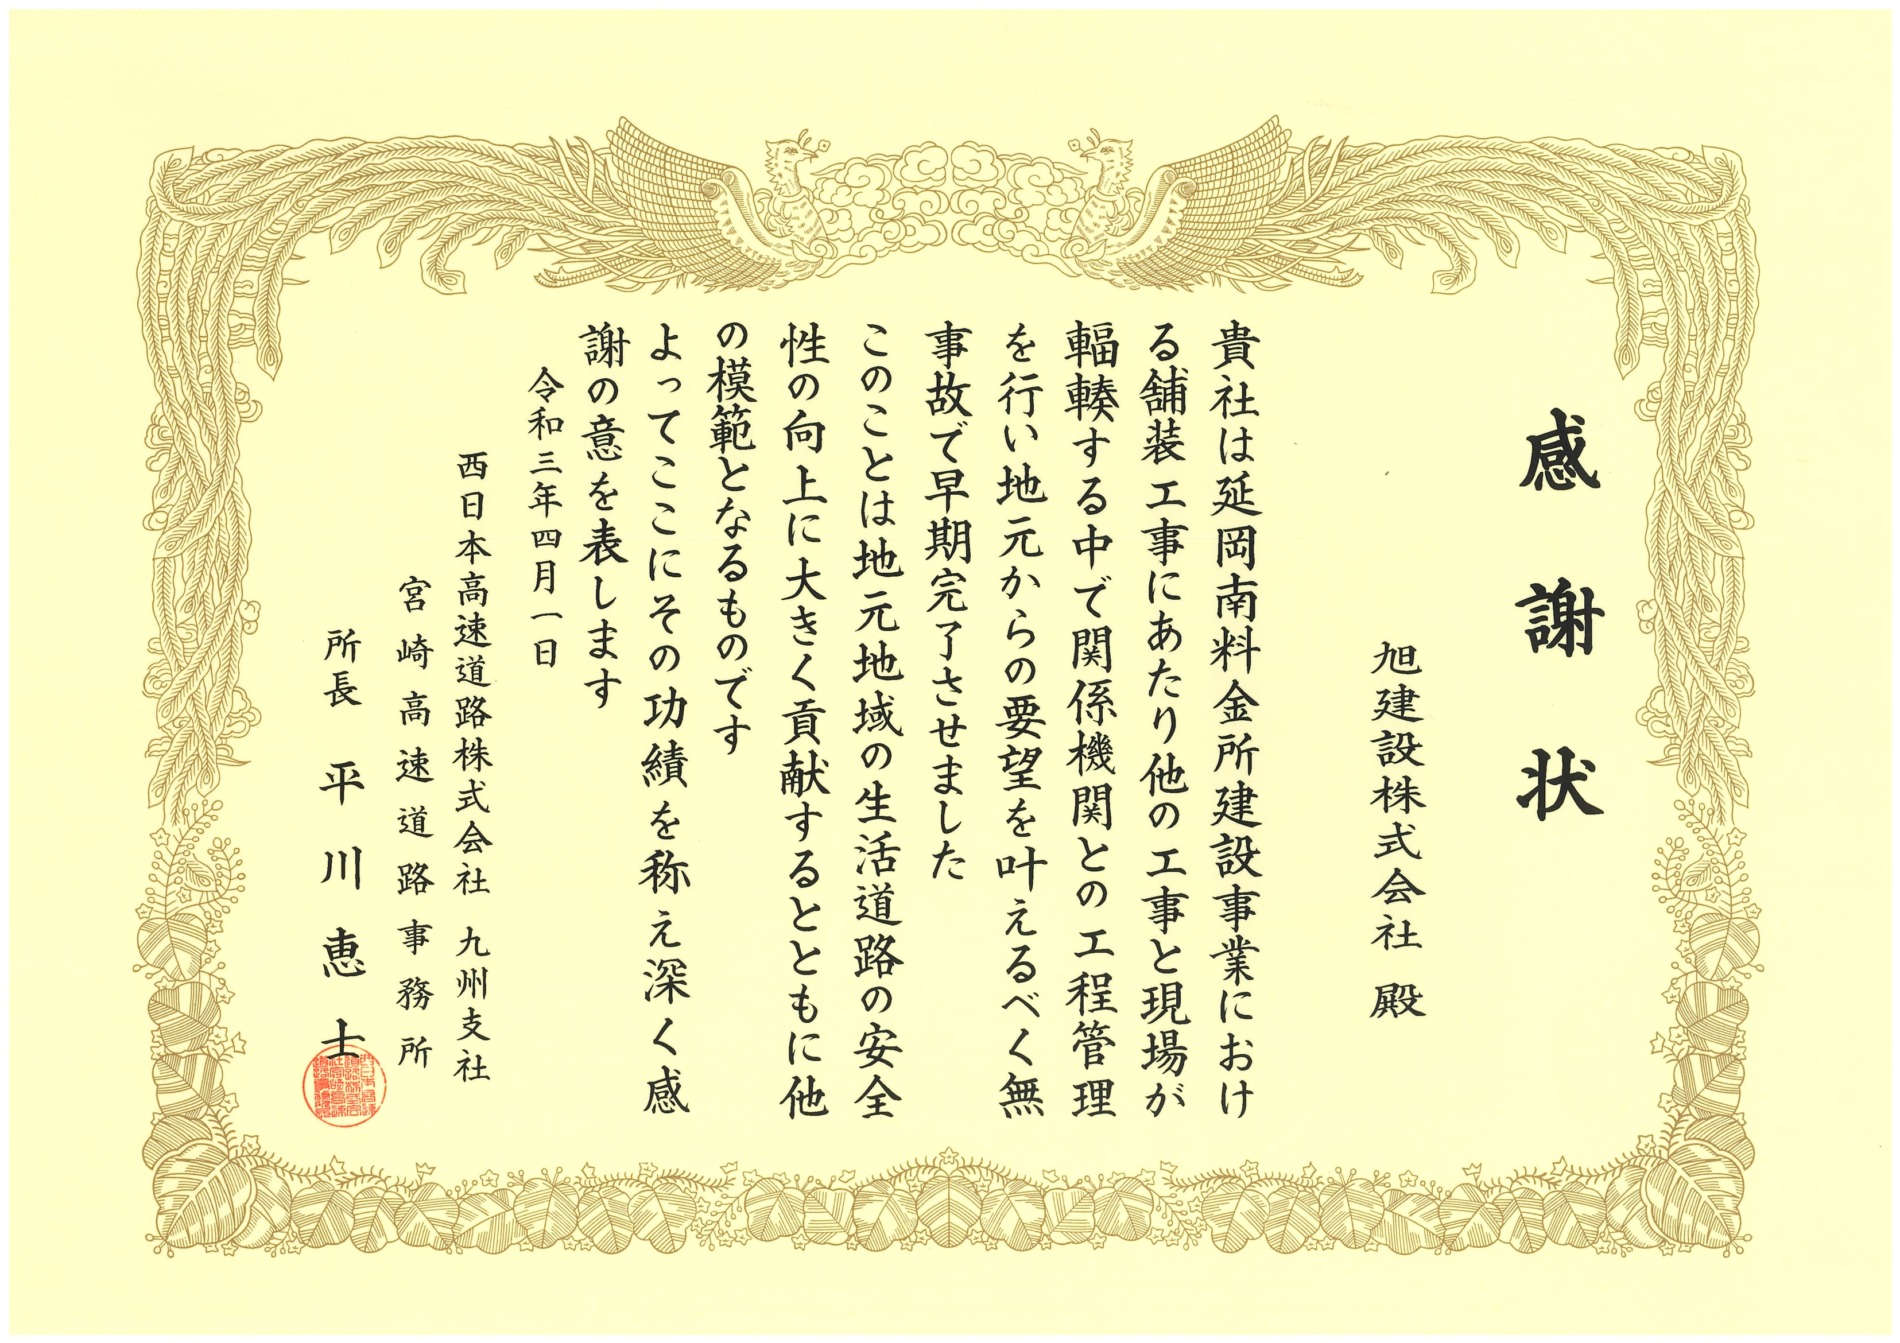 感謝状
旭建設株式会社 殿
貴社は延岡南料金所建設事業におけ
る舗装工事にあたり他の工事と現場が
輻輳する中で関係機関との工程管理
を行い地元からの要望を叶えるべく無
事故で早期完了させました
このことは地元地域の生活道路の安全
性の向上に大きく貢献するとともに他
の模範となるものです
よってここにその功績を称え深く感
謝の意を表します
令和三年四月一日
西日本高速道路株式会社 九州支社
宮崎高速道路事務所
所長 平川恵士